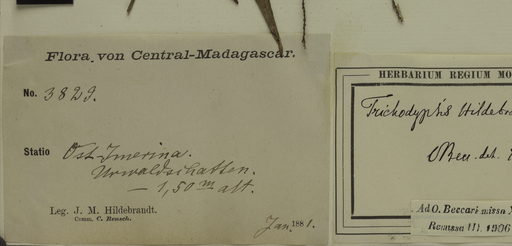 Flora von Central-Madagascar.
No. 3829.
Statio Ost-Imerina.
Urwaldschatten.
— 1,50 m alt.
Leg. J. M. Hildebrandt.
Comm. C. Rensch.
Jan. 1881.
HERBARIUM REGIUM MO
Trichodypsis Hildebra
OBecc. det.
Ad O. Beccari missa
Remissa III. 1906